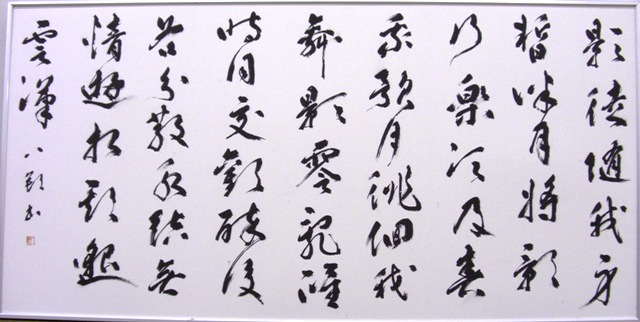 影徒随我身
暫伴月將影
行樂須及春
我歌月徘徊我
舞影零亂醒
時同交歡酔後
各分散永結無
情遊相期邈
雲漢